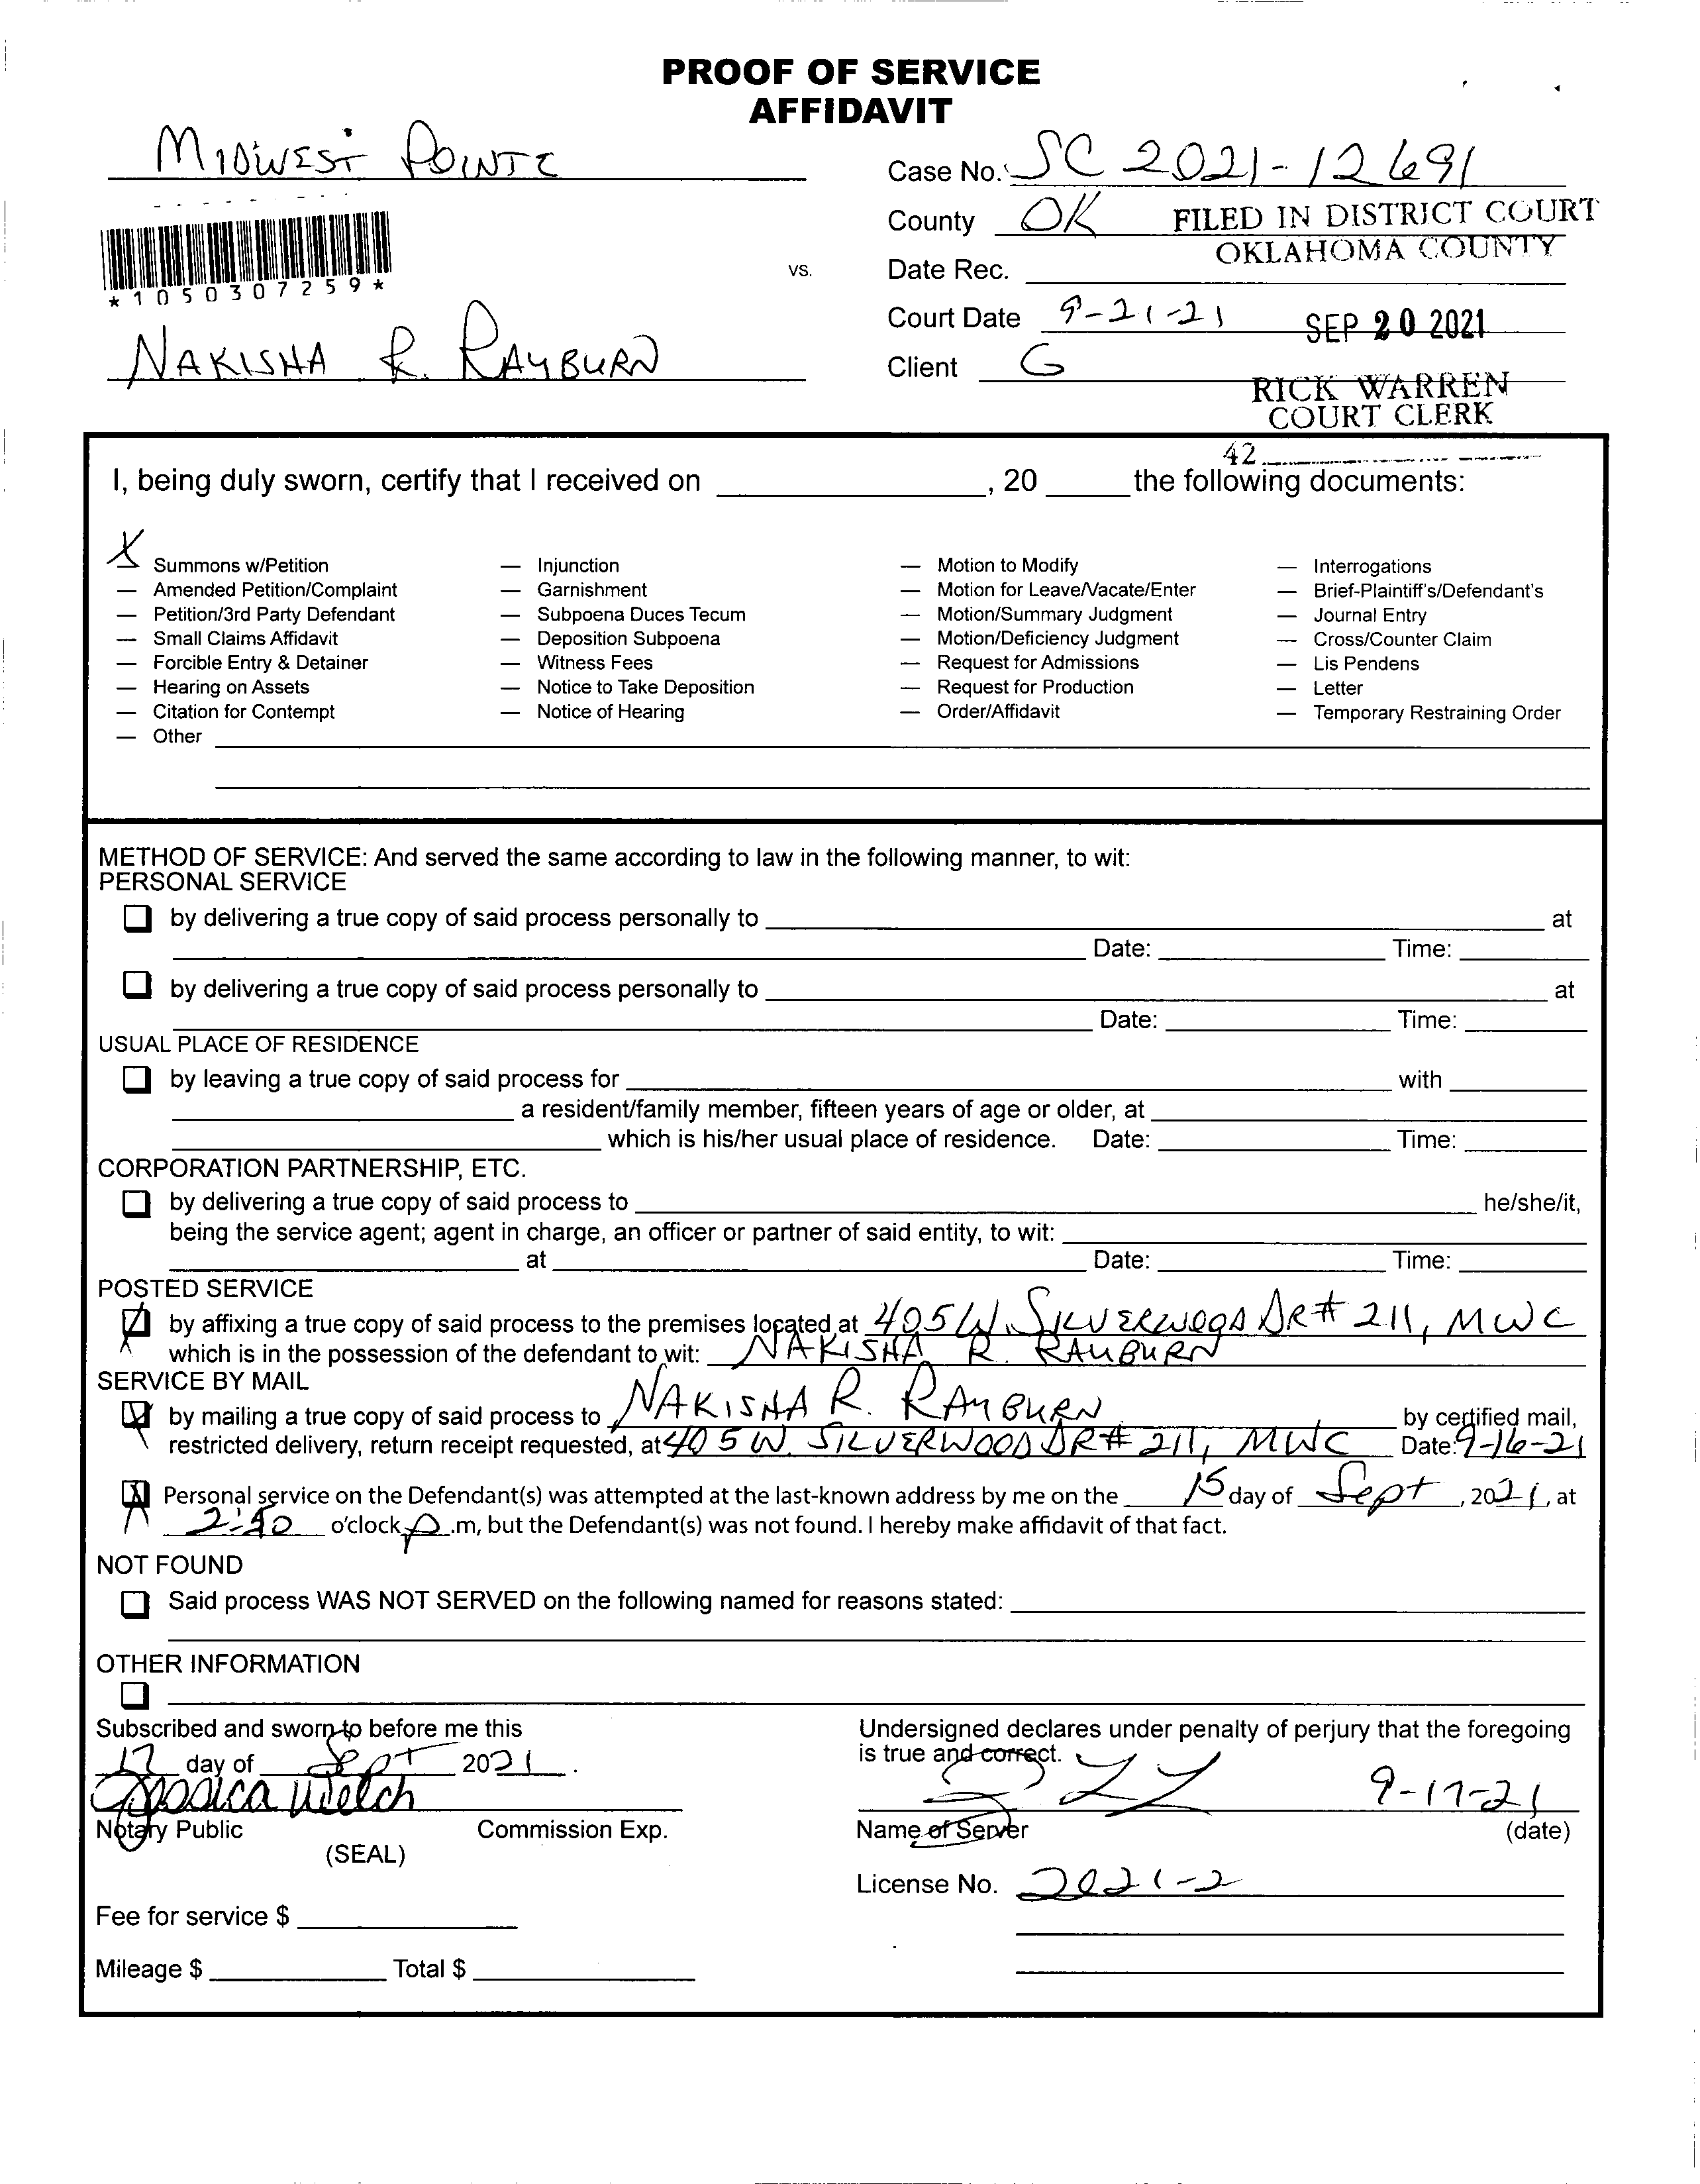 PROOF OF SERVICE
AFFIDAVIT
MIDWEST POINTE
Case No. SC 2021-12691
County OK FILED IN DISTRICT COURT
OKLAHOMA COUNTY
*1050307259*
vs.
Date Rec.
Court Date 9-21-21 SEP 20 2021
NAKISHA R. RAYBURN
Client G
RICK WARREN
COURT CLERK
42
I, being duly sworn, certify that I received on ____, 20 ____ the following documents:
X Summons w/Petition — Injunction — Motion to Modify — Interrogations
— Amended Petition/Complaint — Garnishment — Motion for Leave/Vacate/Enter — Brief-Plaintiff's/Defendant's
— Petition/3rd Party Defendant — Subpoena Duces Tecum — Motion/Summary Judgment — Journal Entry
— Small Claims Affidavit — Deposition Subpoena — Motion/Deficiency Judgment — Cross/Counter Claim
— Forcible Entry & Detainer — Witness Fees — Request for Admissions — Lis Pendens
— Hearing on Assets — Notice to Take Deposition — Request for Production — Letter
— Citation for Contempt — Notice of Hearing — Order/Affidavit — Temporary Restraining Order
— Other
METHOD OF SERVICE: And served the same according to law in the following manner, to wit:
PERSONAL SERVICE
by delivering a true copy of said process personally to ____ at
Date: ____ Time: ____
by delivering a true copy of said process personally to ____ at
Date: ____ Time: ____
USUAL PLACE OF RESIDENCE
by leaving a true copy of said process for ____ with ____
a resident/family member, fifteen years of age or older, at ____
which is his/her usual place of residence. Date: ____ Time: ____
CORPORATION PARTNERSHIP, ETC.
by delivering a true copy of said process to ____ he/she/it,
being the service agent; agent in charge, an officer or partner of said entity, to wit: ____
at ____ Date: ____ Time: ____
POSTED SERVICE
by affixing a true copy of said process to the premises located at 405 W. SILVERWOOD DR # 211, MWC
which is in the possession of the defendant to wit: NAKISHA R. RAYBURN
SERVICE BY MAIL
by mailing a true copy of said process to NAKISHA R. RAYBURN by certified mail,
restricted delivery, return receipt requested, at 405 W. SILVERWOOD DR # 211, MWC Date: 9-16-21
Personal service on the Defendant(s) was attempted at the last-known address by me on the 15 day of Sept, 2021, at
2:40 o'clock p.m, but the Defendant(s) was not found. I hereby make affidavit of that fact.
NOT FOUND
Said process WAS NOT SERVED on the following named for reasons stated:
OTHER INFORMATION
Subscribed and sworn to before me this
17 day of Sept 2021.
Jessica Welch
Notary Public Commission Exp.
(SEAL)
Undersigned declares under penalty of perjury that the foregoing
is true and correct.
9-17-21
Name of Server (date)
License No. 2021-2
Fee for service $
Mileage $ ____ Total $ ____